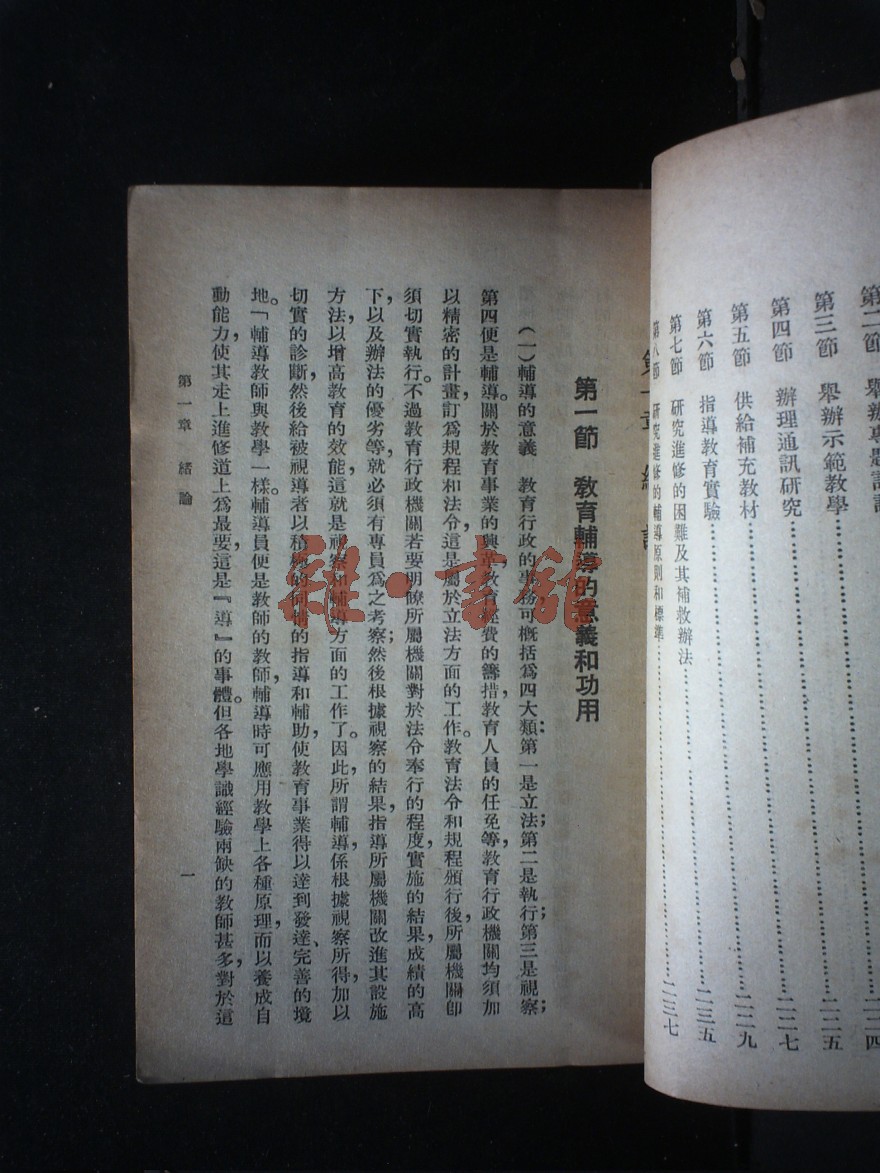 第三節 舉辦示範教學……二二五
第四節 辦理通訊研究……二二七
第五節 供給補充教材……二二九
第六節 指導教育實驗……二三五
第七節 研究進修的困難及其補救辦法
第八節 研究進修的輔導原則和標準……二三七
第一節 教育輔導的意義和功用
(一)輔導的意義 教育行政的事務可概括爲四大類:第一是立法;第二是執行;第三是視察;
第四便是輔導。關於教育事業的興革,教育經費的籌措,教育人員的任免等,教育行政機關均須加
以精密的計畫訂爲規程和法令,這是屬於立法方面的工作。教育法令和規程頒行後,所屬機關卽
須切實執行。不過教育行政機關若要明瞭所屬機關對於法令奉行的程度,實施的結果,成績的高
下,以及辦法的優劣等,就必須有專員爲之考察;然後根據視察的結果,指導所屬機關改進其設施
方法,以增高教育的效能,這就是視察和輔導方面的工作了。因此,所謂輔導係根據視察所得加以
切實的診斷,然後給被視導者以積極的同情的指導和輔助,使教育事業得以達到發達、完善的境
地。「輔導教師與教學一樣。輔導員便是教師的教師,輔導時可應用教學上各種原理,而以養成自
動能力,使其走上進修道上爲最要,這是『導』的事體。但各地學識經驗兩缺的教師甚多,對於這
第一章 緒論
一
雜·書館